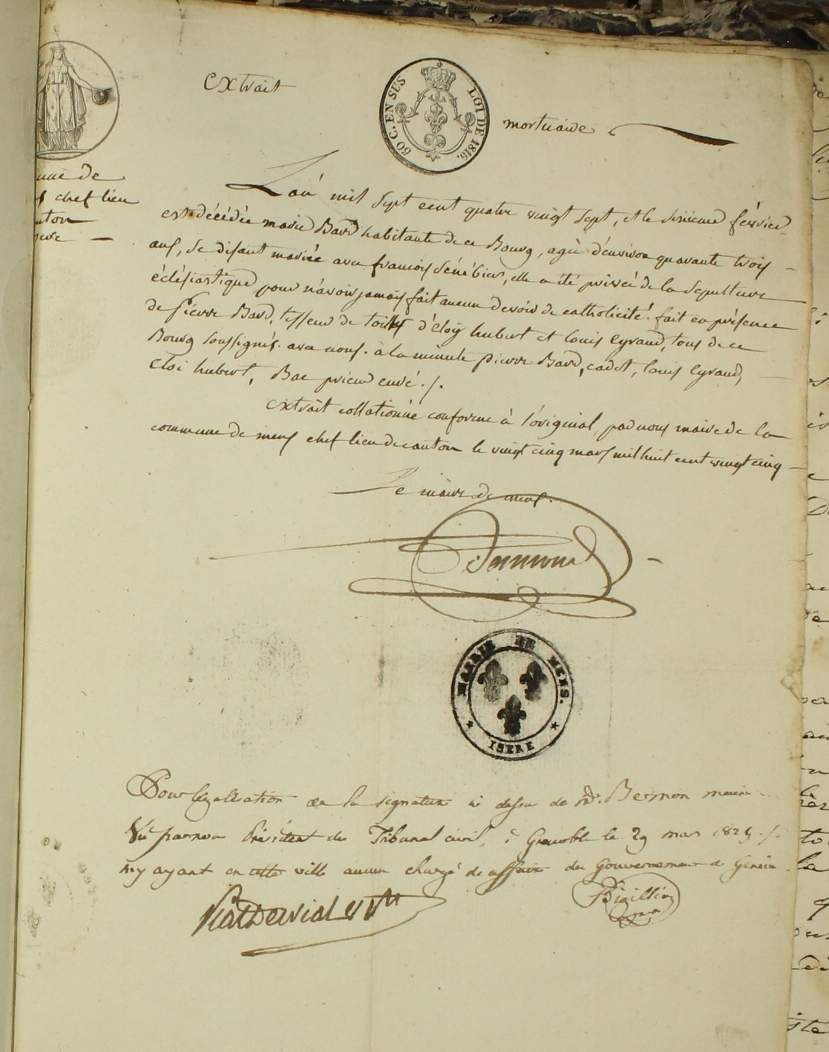 extrait
60 C. EN SUS
LOI DE 1816.
mortuaire
de
chef lieu
L'an mil sept cent quatre vingt sept, et le fevrier
est décédée marie Bard habitante de ce Bourg, agée d'environ quarante trois
ans, se disant mariée avec francois Sénébier, elle a été privée de la sepulture
éclésiastique pour n'avoir jamais fait aucun devoir de catholicité. fait en présence
de pierre Bard, tisseur de toiles d'éloÿ hubert et louis Eyraud, tous de ce
Bourg soussignés avec nous. à la minute pierre Bard, cadet, louis Eyraud,
Eloi hubert, Bac prieur curé ./.
extrait collationné conforme à l'original, par nous maire de la
commune de mens chef lieu de canton le vingt cinq mars mil huit cent vingt cinq
Le maire de mens.
MAIRIE DE MENS.
ISERE
Pour légalisation de la signature ci dessus de Mr. Bermon maire
Vu par nous Président du Tribunal civil, à Grenoble le 29 mars 1825 ./.
n'y ayant en cette ville aucun chargé d'affaires du Gouvernement de Genève